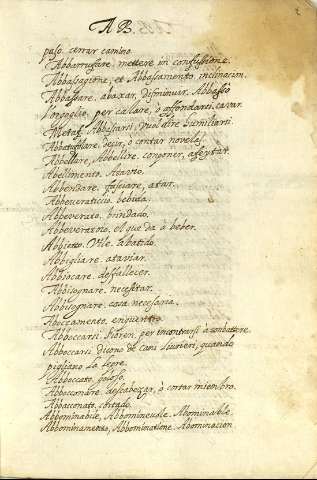 AB.
paso. cerrar camino.
Abbaruffare. mettere in confusione.
Abbassagione, et Abbassamento, inclinacion.
Abbassare. abaxar, disminuir. Abbasso
l'orgoglio, per calare, o affondarsi. cavar.
Metaf. Abbasarsi, vuol dire humiliarsi.
dezir, o contar novelas.
Abbellare, Abbellire. componer, afeytar.
Abellimento. Atavio.
Abbendare. fasciare, atar.
Abbeveraticcio. bebida.
Abbeverato. brindado.
Abbeveratno. el que da à beber.
Abbietto. Vile. abatido.
Abbigliare. ataviar.
Abbiocare. desfallecer.
Abbisognare. necesitar.
Abbisognare. cosa necesaria.
Aboccamento. encuentro.
Abboccarsi. fioren. per incontrarsi à combattere.
Abboccarsi dicono de cani livrieri, quando
pigliano la lepre.
Abboccato. goloso.
Abboccnare. descabezar, ò cortar miembro.
Abbacconato. cortado.
Abbominabile, Abbominevole. Abominable.
Abbominamento, Abbominatione. Abominacion